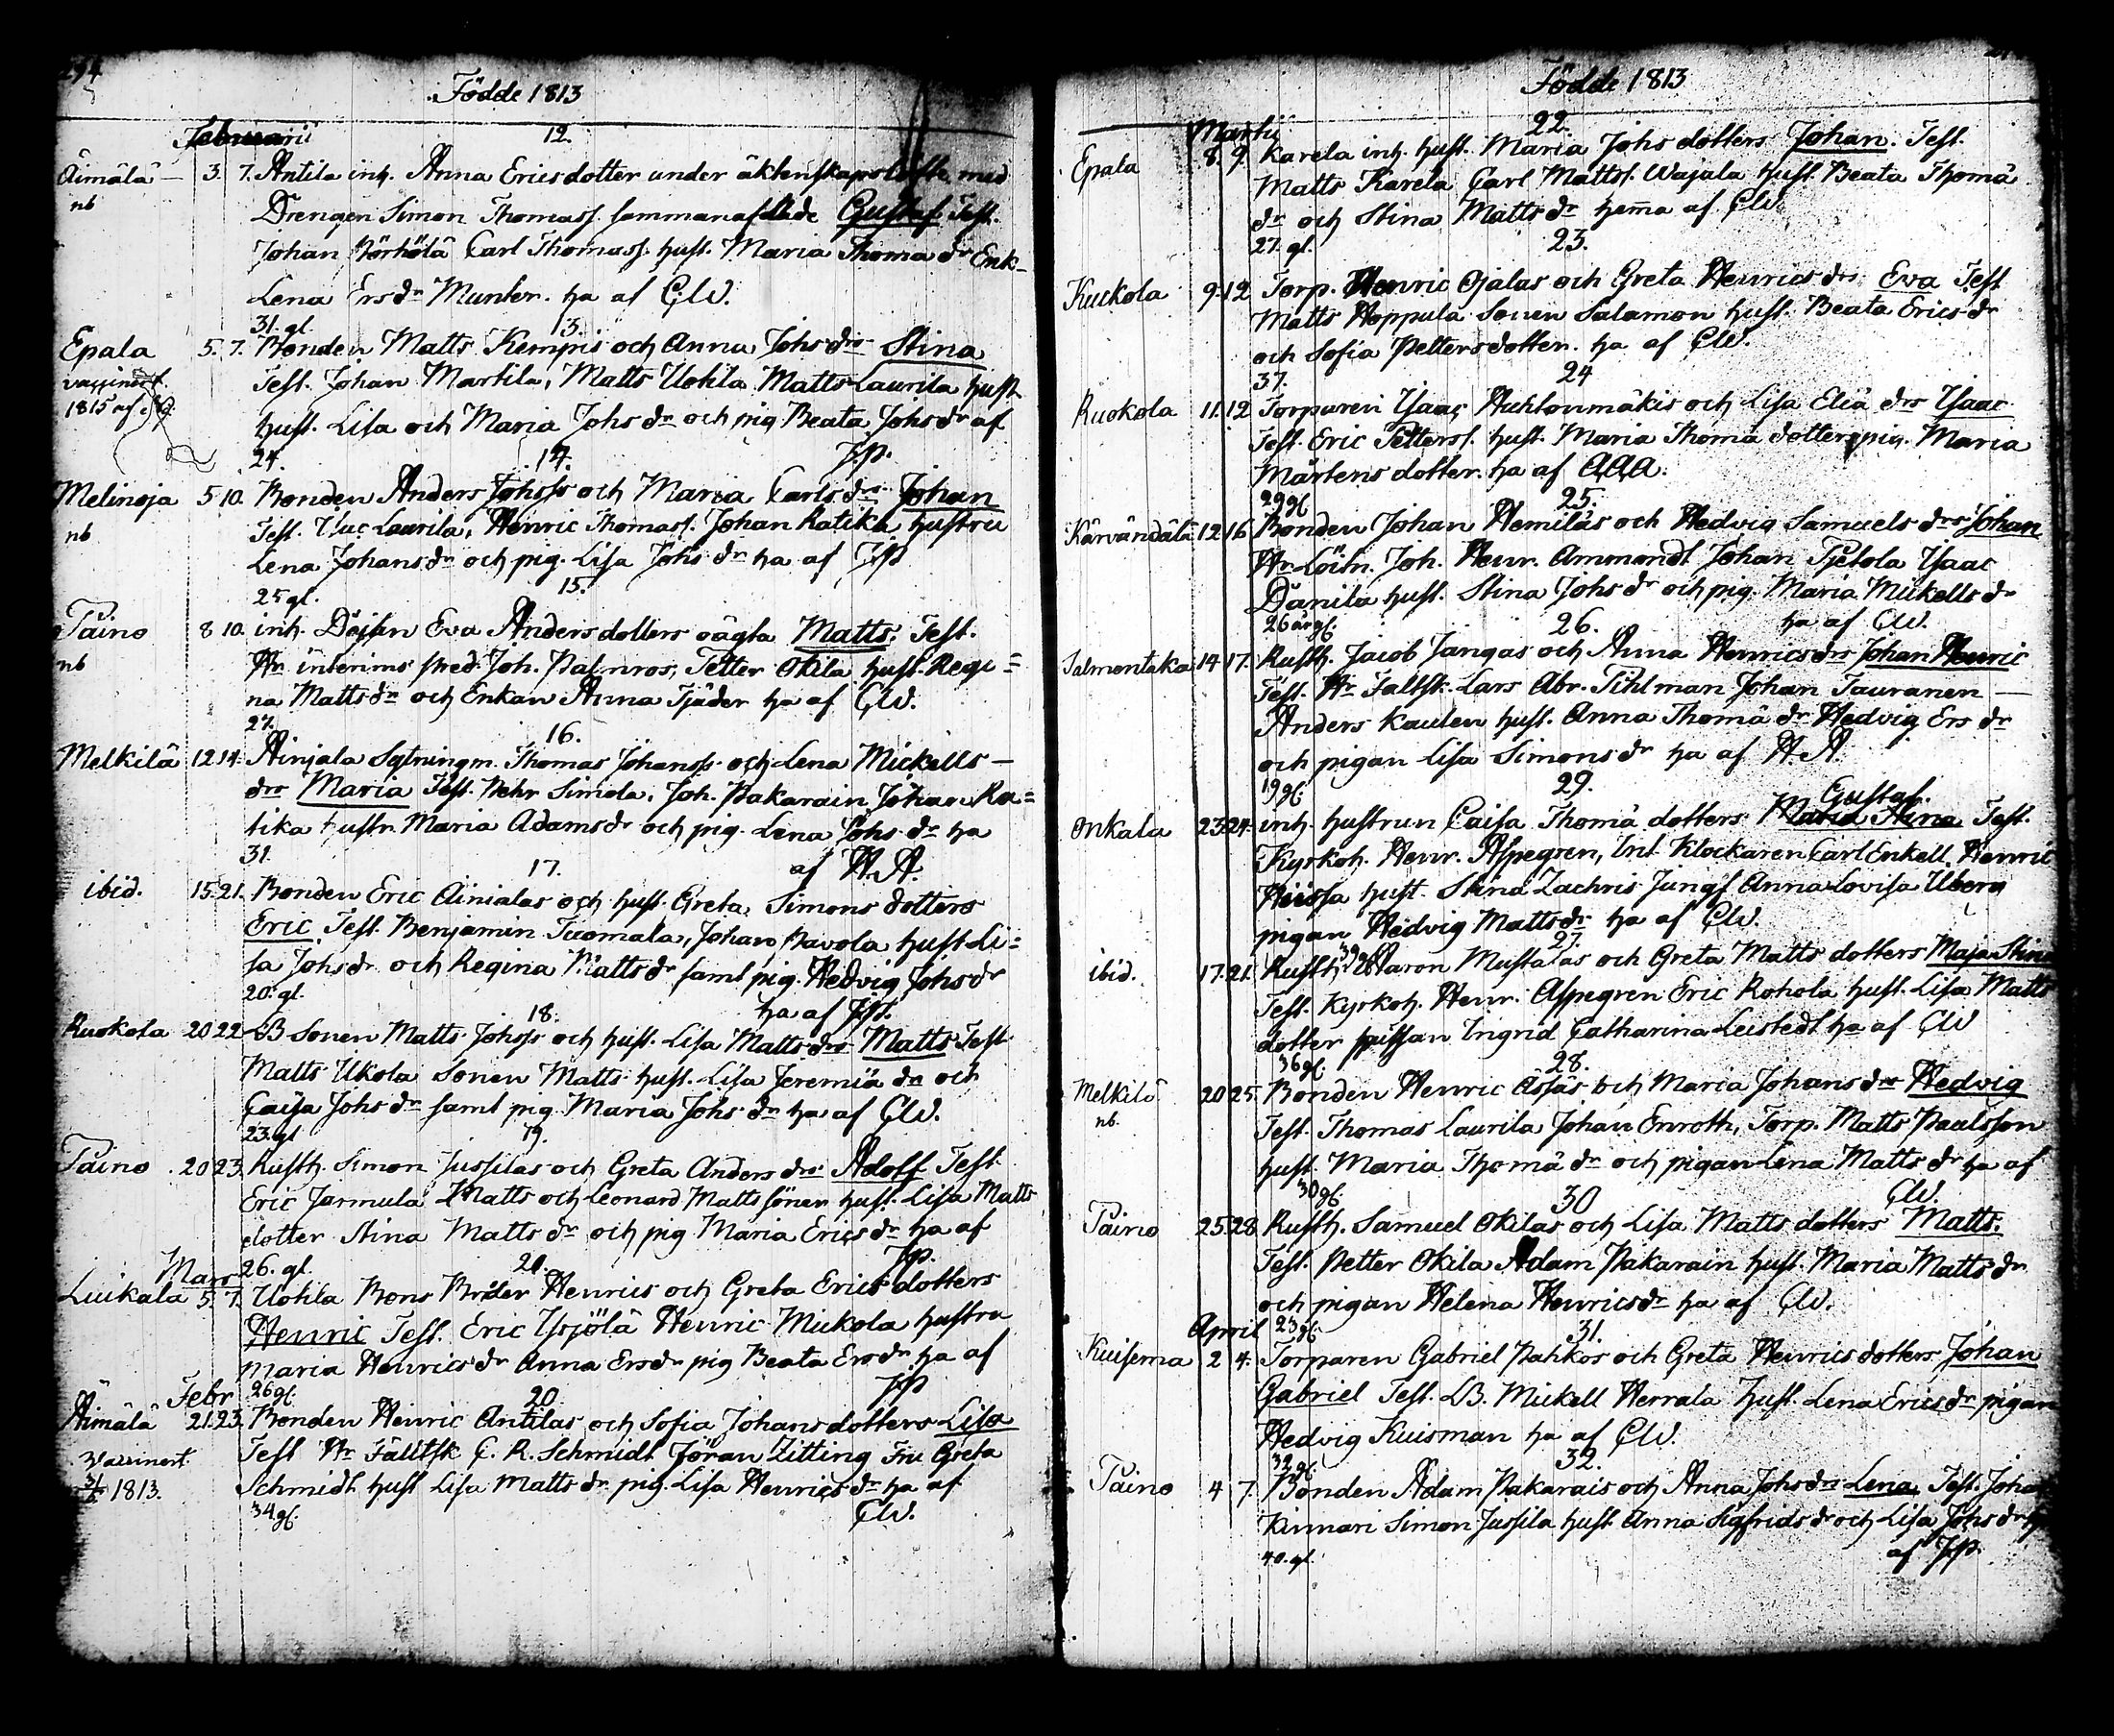 294
Födde 1813
Februarii 12.
Äimälä — 3. 7. Antila inh. Anna Ericsdotter under äktenskaps löfte med
nb Drengen Simon Thomass. sammanaflade Gustaf Test.
Johan Carl Thomass. hust. Maria Thoma dr Enk.
Lena Ersdr Munter. ha af GW.
31. gl. 13.
Epala 5. 7. Bonden Matts Kempis och Anna Johs drs Stina
Test. Johan Martila, Matts Uotila Matts Laurila hust.
1815 af
hust. Lisa och Maria Johs dr och pig Beata Johs dr af
24. 14. JP.
Melinoja 5 10. Bonden Anders Johss och Maria Carls drs Johan
nb Test. Isac Laurila, Henric Thomass. Johan Ratika hustru
Lena Johansdr och pig. Lisa Johs dr ha af JP
25 gl. 15.
Taino 8 10. inh. Eva Andersdotters oägta Matts. Test.
nb Hr interims pred. Joh. Palmros, Petter Okila hust. Regi=
na Mattsdr och Enkan Anna Tjäder ha af GW.
27. 16.
Melkilä 12 14. Ainjala Sytningm. Thomas Johanss och Lena Mickells —
drs Maria Test. Pehr Simola, Joh. Pakarain Johan Ra=
tika hustr. Maria Adamsdr och pig. Lena Johs dr ha
31. 17. af H.A.
ibid. 15. 21. Bonden Eric Ainialas och hust. Greta Simons dotters
Eric Test. Benjamin Tuomala, Johan Pavola hust. Li=
sa Johsdr och Regina Mattsdr saml pig. Hedvig Johsdr
20. gl. 18. ha af JP.
Ruokola 20 22. B Sonen Matts Johss och hust. Lisa Matts drs Matts Test
Matts Ukola Sonen Matts hust. Lisa Jeremiä dr och
Caisa Johs dr saml pig. Maria Johs dr ha af GW.
23. gl 19.
Taino. 20 23. Rusth. Simon Jussilas och Greta Anders drs Adolf Test.
Eric Jarmula Matts och Leonard Matts söner hust. Lisa Matts
dotter Stina Matts dr och pig Maria Erics dr ha af
Mars 26. gl. 21. JP.
Luikala 5. 7. Uotila Bons Broder Henrics och Greta Erics dotters
Henric Test. Eric Yrjölä Henric Mickola hustru
Maria Henricsdr Anna Ersdr pig Beata Ersdr ha af
Febr 26 gl. 20 JP
Äimälä 21. 23. Bonden Henric Antilas och Sofia Johansdotters Lisa
Test Hr Fältsk C. R. Schmidt Jöran Zitting Fru Greta
1813. Schmidt hust Lisa Matts dr pig. Lisa Henrics dr ha af
34 gl. GW.
Födde 1813
Martii 22.
Epala 8. 9. Karela inh. hust. Maria Johs dotters Johan. Test.
Matts Karela Carl Matts. Wajala hust. Beata Thomä
dr och Stina Matts dr hema af GW.
27. gl. 23.
Kuckola 9. 12 Torp. Henric Ojalas och Greta Henrics drs Eva Test
Matts Hoppula Sonen Salamon hust. Beata Erics dr
och Sofia Pettersdotter. ha af GW.
37. 24
Ruokola 11. 12 Torparen Isaac Huhtonmäkis och Lisa Eliä drs Isaac
Test. Eric Petters. hust. Maria Thomä dotter, pig. Maria
Mårtensdotter. ha af AAA.
29 gl. 25.
Kärvändälä 12 16 Bonden Johan Hemiläs och Hedvig Samuels drs Johan
Hr Löitn. Joh. Henr. Ammondt Johan Isaac
Danila hust. Stina Johs dr och pig. Maria Mickells dr
26 år gl. 26. ha af GW.
Salmentaka 14 17. Rusth. Jacob Jangas och Anna Henricsdrs Johan Henric
Test. Hr Fältsk. Lars Abr. Pihlman Johan Tauranen —
Anders Kaulen hust. Anna Thomä dr Hedvig Ers dr
och pigan Lisa Simonsdr ha af H A.
19 gl. 29. Gustaf.
Onkala 23. 24. inh. hustrun Caisa Thomä dotters Maria Stina Test.
Kyrkoh. Henr. Aspegren, Unt Klockaren Carl Enkell. Henric
hust. Stina Zachris Jungf Anna Lovisa Uberg
pigan Hedvig Mattsdr ha af GW.
27.
ibid. 17. 21. Rusth. Aaron Mustalas och Greta Matts dotters Maja Stina
Test. Kyrkoh. Henr. Aspegren Eric Rohola hust. Lisa Matts
dotter Ingrid Catharina Leistedt ha af GW
36 gl. 28.
Melkilä 20 25. Bonden Henric Ässäs och Maria Johans drs Hedvig
nb. Test. Thomas Laurila Johan Enroth, Torp. Matts Paulsson
hust. Maria Thomä dr och pigan Lena Matts dr ha af
30 gl. 30 GW.
Taino 25 28 Rusth. Samuel Okilas och Lisa Matts dotters Matts.
Test. Petter Okila Adam Pakarain hust. Maria Matts dr
och pigan Helena Henricsdr ha af GW.
April 23 gl. 31.
Kuisema 2 4. Torparen Gabriel Pahkos och Greta Henrics dotters Johan
Gabriel Test. LB. Mickell Herrala hust. Lena Ericsdr pigan
Hedvig Kuisman ha af GW.
32 gl. 32.
Taino 4 7 Bonden Adam Pakarais och Anna Johsdrs Lena, Test. Johan
Kinnari Simon Jussila hust. Anna Sigfrids dr och Lisa Johs dr ha
40. gl. af JP.